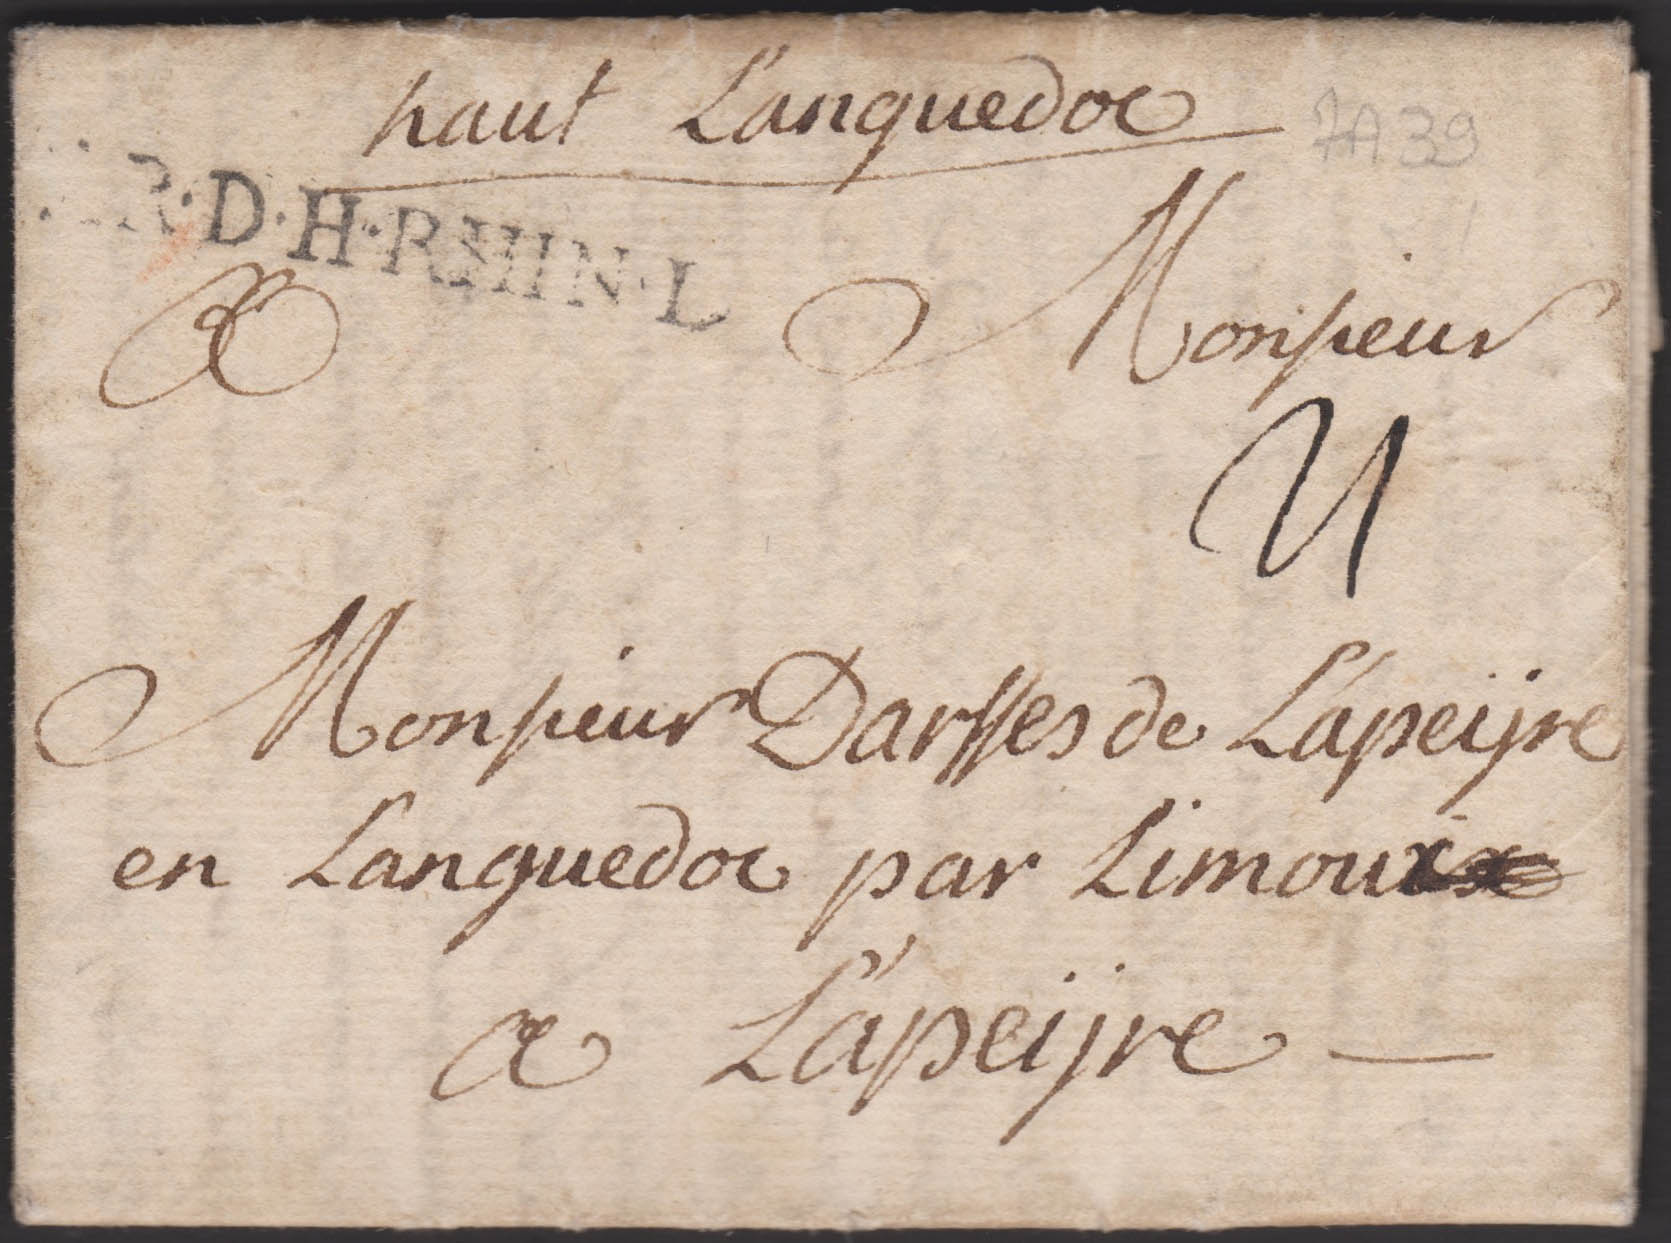 haut Languedoc
7A 39
R·D·H·RHIN·L
A Monsieur
Monsieur Darsses de Lapeijre
en Languedoc par Limoux
a Lapeijre